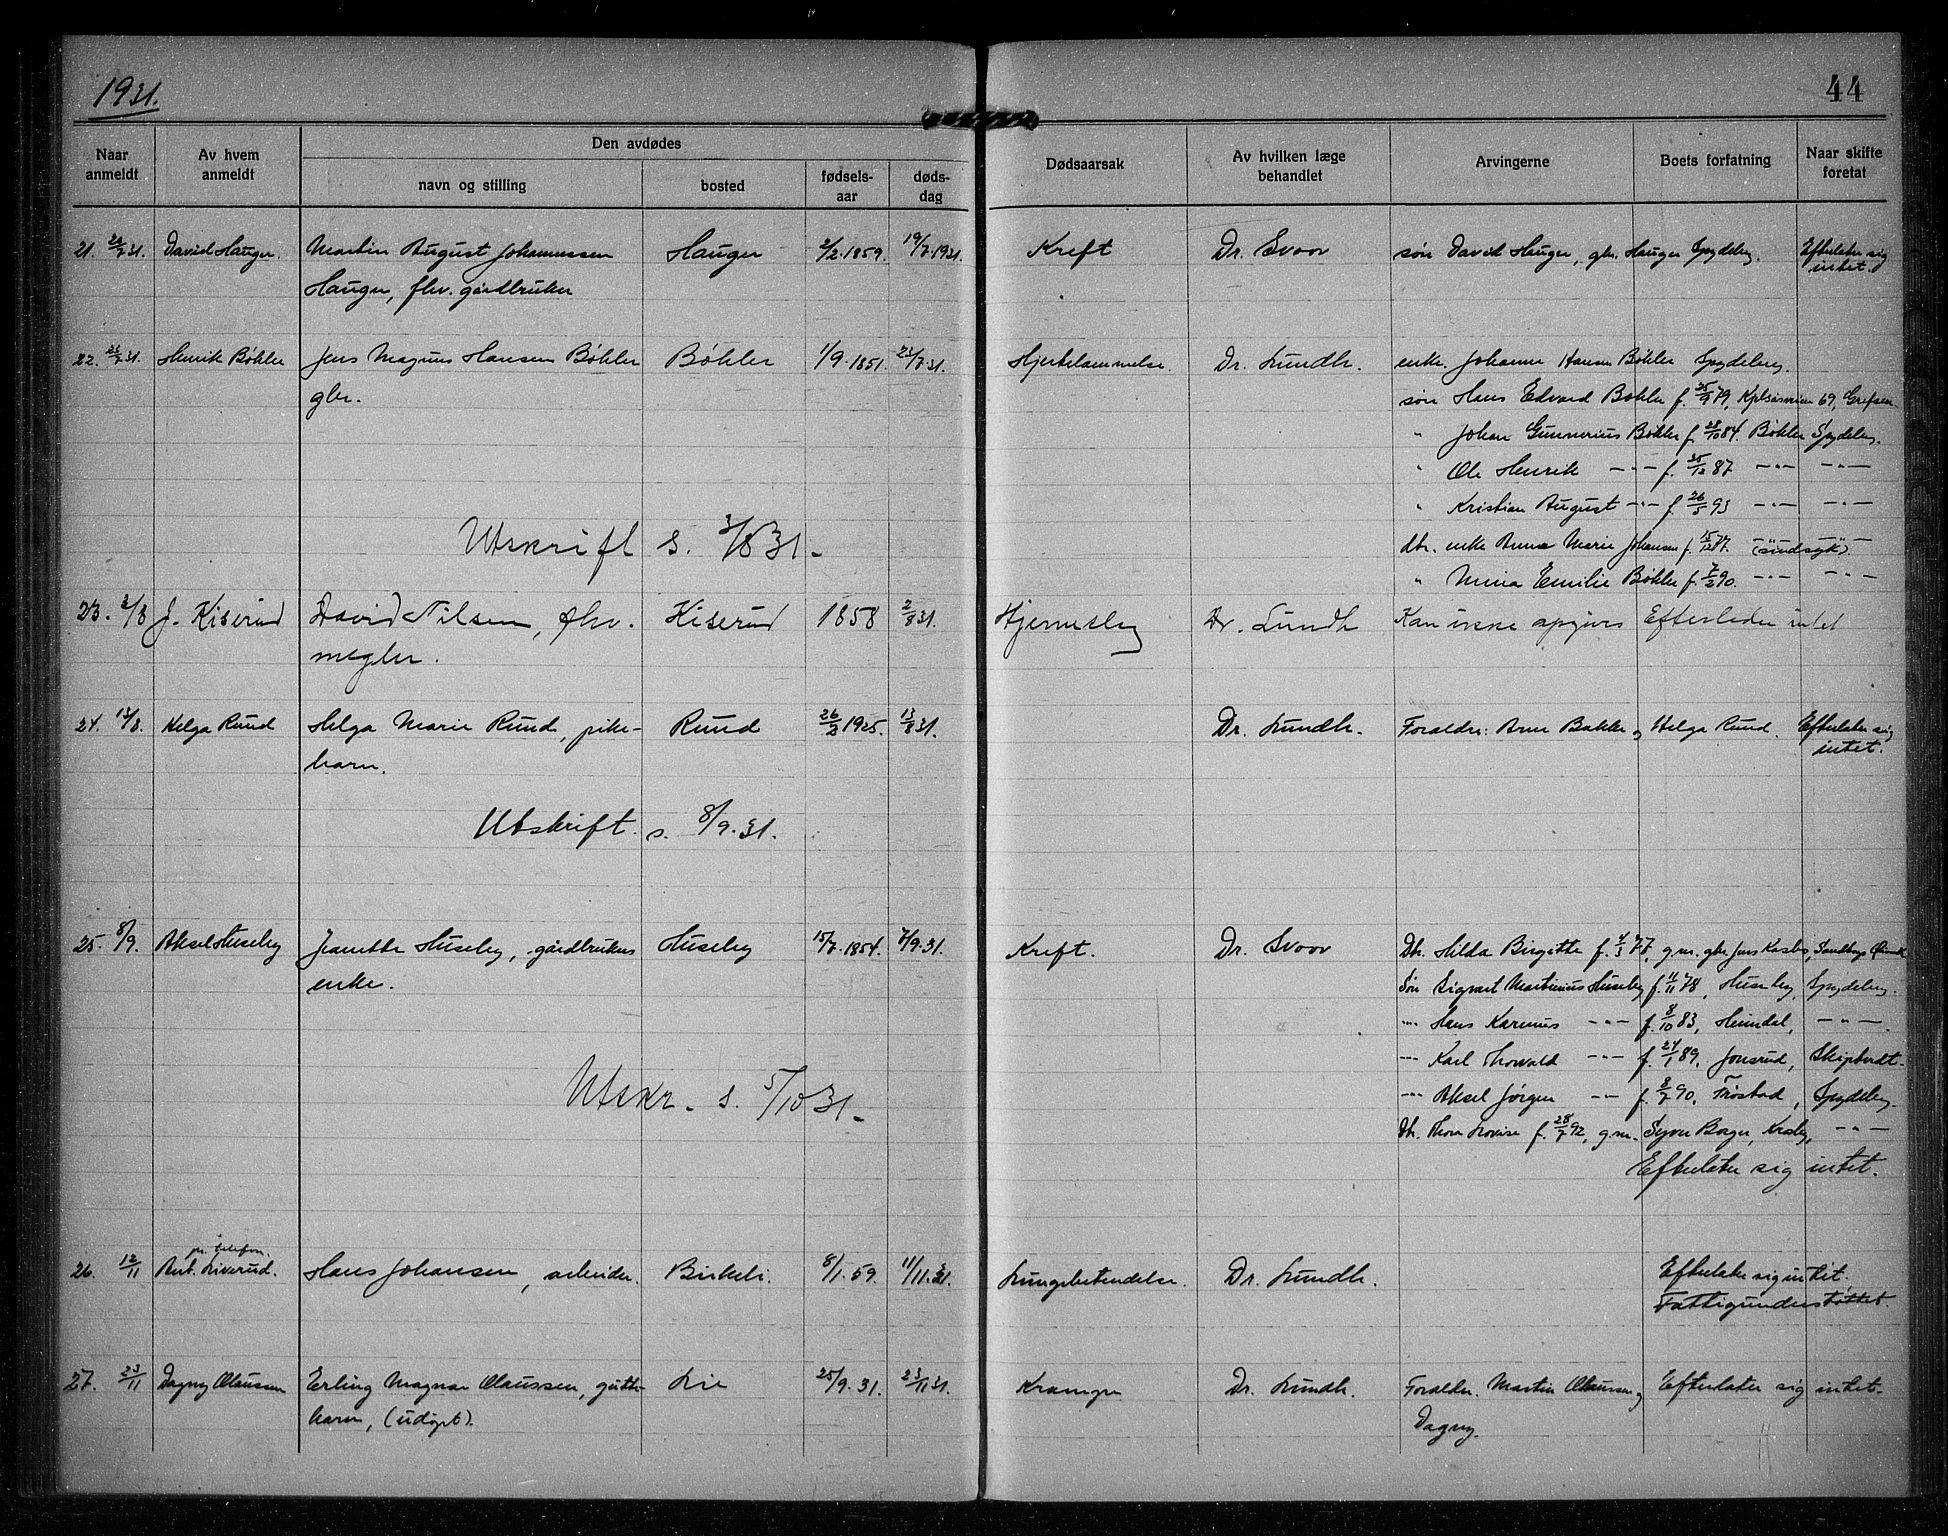 1931.
44
Naar anmeldt
Av hvem anmeldt
Den avdødes
navn og stilling
bosted
fødsels-aar
døds-dag
Dødsaarsak
Av hvilken læge behandlet
Arvingerne
Boets forfatning
Naar skifte foretat
21. 31. David Hauger. Martin August Johannessen Hauger 2/2.1859. 19/7.1931. Kreft Dr. Svoor søn David Hauger, gbr. Hauger Spydeberg. Efterlater sig
Hauger, fhv. gårdbruker intet.
22. 31. Henrik Bøhler Jens Magnus Hansen Bøhler Bøhler 1/9.1851. 23/7.31. Hjertelammelse. Dr. Lundh. enke. Johanne Hansen Bøhler Spydeberg.
gbr. søn Hans Edvard Bøhler f. 25/9 79, 69, Grefsen
" Johan Gunnerius Bøhler f. 28/10 84. Bøhler Spydeberg.
" Ole Henrik —"— f. 25/12 87 —"— —"—
" Kristian August —"— f. 26/5 93 —"— —"—
Utskrift s. 3/8 31.-
dtr. enke Anna Marie Johansen f. 15/12 77. —"— (sindsyk). —"—
" Mina Emilie Bøhler f. 7/2 90. —"— —"—
23. 3/8 J. Kiserud David Nilsen, fhv. Kiserud 1858 2/8 31. Hjerneslag Dr. Lundh Kan ikke opgives Efterleder intet
megler.
24. 13/8. Helga Ruud Helga Marie Ruud, pike- Ruud 26/2 1925. 13/8 31. Dr. Lundh. Foraldre: Arne Bakke og Helga Ruud. Efterlater sig
barn. intet.
Utskrift. s. 8/9.31.
25. 8/9. Aksel Huseby Jeanette Huseby, gårdbrukers Huseby 15/7.1854. 7/9.31. Kreft. Dr. Svoor Dtr. Hilda Birgitte f. 4/3 77, g.m. gbr. Jens
enke. Søn Sigvart Martinius Huseby f. 11/11 78, Huseby, Spydeberg.
-"- Hans Karenus —"— f. 8/10 83, Heimdal, —"—.
-"- Karl Thorvald —"— f. 24/1 89, Jonsrud, Skiptvedt.
Utskr. s. 5/10 31.-
-"- Aksel Jørgen —"— f. 3/7 90, Frøstad, Spydeberg.
Dtr. Thora Lovise f. 28/7 92, g.m. Syver Borger, —"—
Efterlater sig intet.
pr. telefon.
26. 12/11 Ant. Liverud. Hans Johansen, arbeider. Birkeli. 8/1.59. 11/11.31. Lungebetendelse. Dr. Lundh. Efterlater sig intet.
Fattigunderstøttet.
27. 23/11 Dagny Olaussen Erling Magnar Olaussen, gutte- Lie 25/9.31. 23/11 31. Krampe Dr. Lundh. Foraldre. Martin Olaussen og Efterlater sig intet.
barn, (udøpt). Dagny.